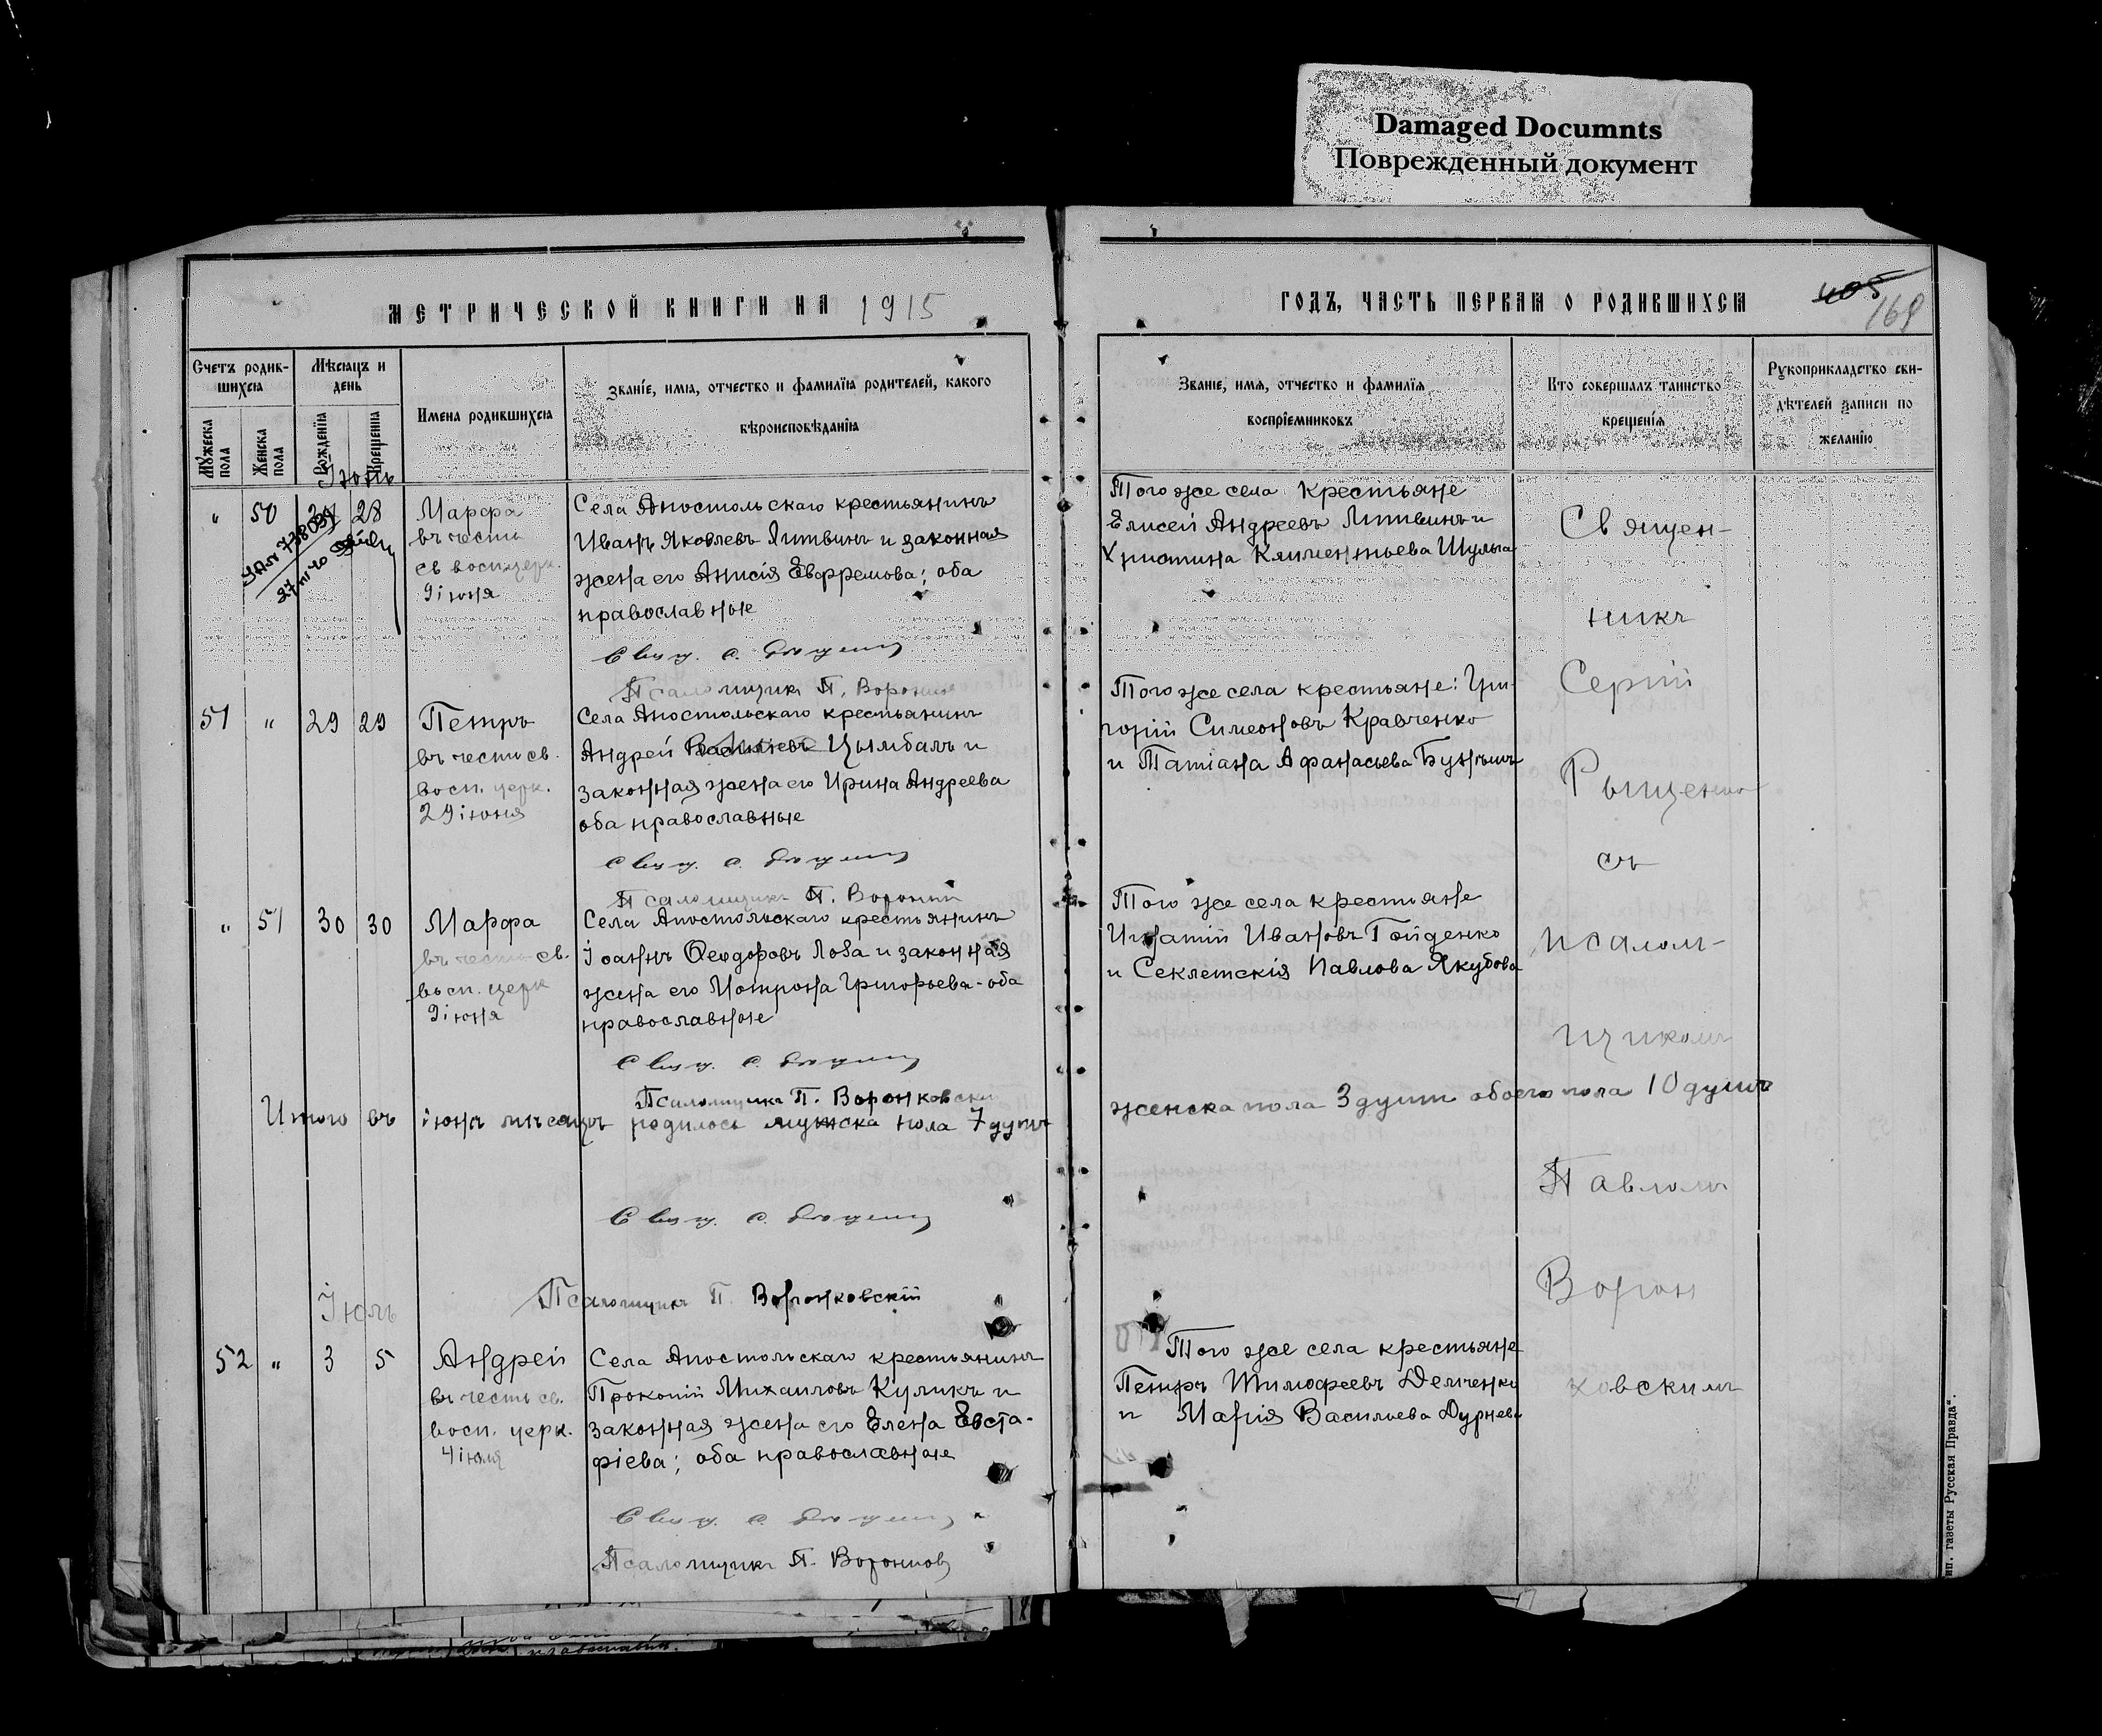 Damaged Documnts
Поврежденный документ
МЕТРИЧЕСКОЙ КНИГИ НА 1915
ГОДЪ, ЧАСТЬ ПЕРВАЯ О РОДИВШИХСЯ
405
169
Счетъ родив-
шихся
Мѣсяцъ и
день
Мужеска пола
Женска пола
Рожденія
Крещенія
Имена родившихся
Званіе, имя, отчество и фамилія родителей, какого
вѣроисповѣданія
Званіе, имя, отчество и фамилія
воспріемниковъ
Кто совершалъ таинство
крещенія
Рукоприкладство сви-
дѣтелей записи по
желанію
Іюнь
" 50 28
Марфа
въ честь
св восп. церк.
9 іюня
Села Апостольскаго крестьянинъ
Иванъ Яковлевъ Литвинъ и законная
жена его Анисія Евфремова; оба
православные
Псаломщикъ П. Воронк
Того же села крестьяне
Елисей Андреевъ Литвинъ и
Христина Климентьева Шульга
51 " 29 29
Петръ
въ честь св.
восп. церк.
29 іюня
Села Апостольскаго крестьянинъ
Андрей Цымбалъ и
законная жена его Ирина Андреева
оба православные
Псаломщикъ П. Воронк
Того же села крестьяне: Гри-
горій Симеоновъ Кравченко
и Татіана Афанасьева
" 51 30 30
Марфа
въ честь св.
восп. церк
9 іюня
Села Апостольскаго крестьянинъ
Іоаннъ Ѳеодоровъ Лоза и законная
жена его Мотрона Григорьева - оба
православные
Псаломщикъ П. Воронковскій
Того же села крестьяне
Игнатій Ивановъ Гойденко
и Секлетскія Павлова Якубова
Итого въ іюнѣ мѣсяцѣ родилось мужска пола 7 душъ
женска пола 3 души обоего пола 10 душъ
Псаломщикъ П. Воронковскій
Іюль
52 " 3 5
Андрей
въ честь св.
восп. церк.
4 іюля
Села Апостольскаго крестьянинъ
Прокопій Михаиловъ Куликъ и
законная жена его Елена Евста-
фіева; оба православные
Псаломщикъ П. Воронков
Того же села крестьяне
Петръ Тимофеевъ Демченко
и Марія Васильева Дурнева
Священ-
никъ
Сергій
съ
псалом-
щикомъ
Павломъ
Ворон
ковскимъ
ип. газеты Русская Правда".